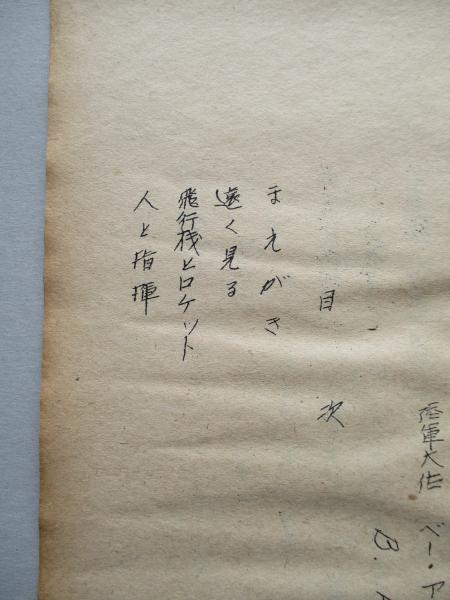 陸軍大佐 ベー・ア
B.
目次
まえがき
遠く見る
飛行機とロケット
人と指揮